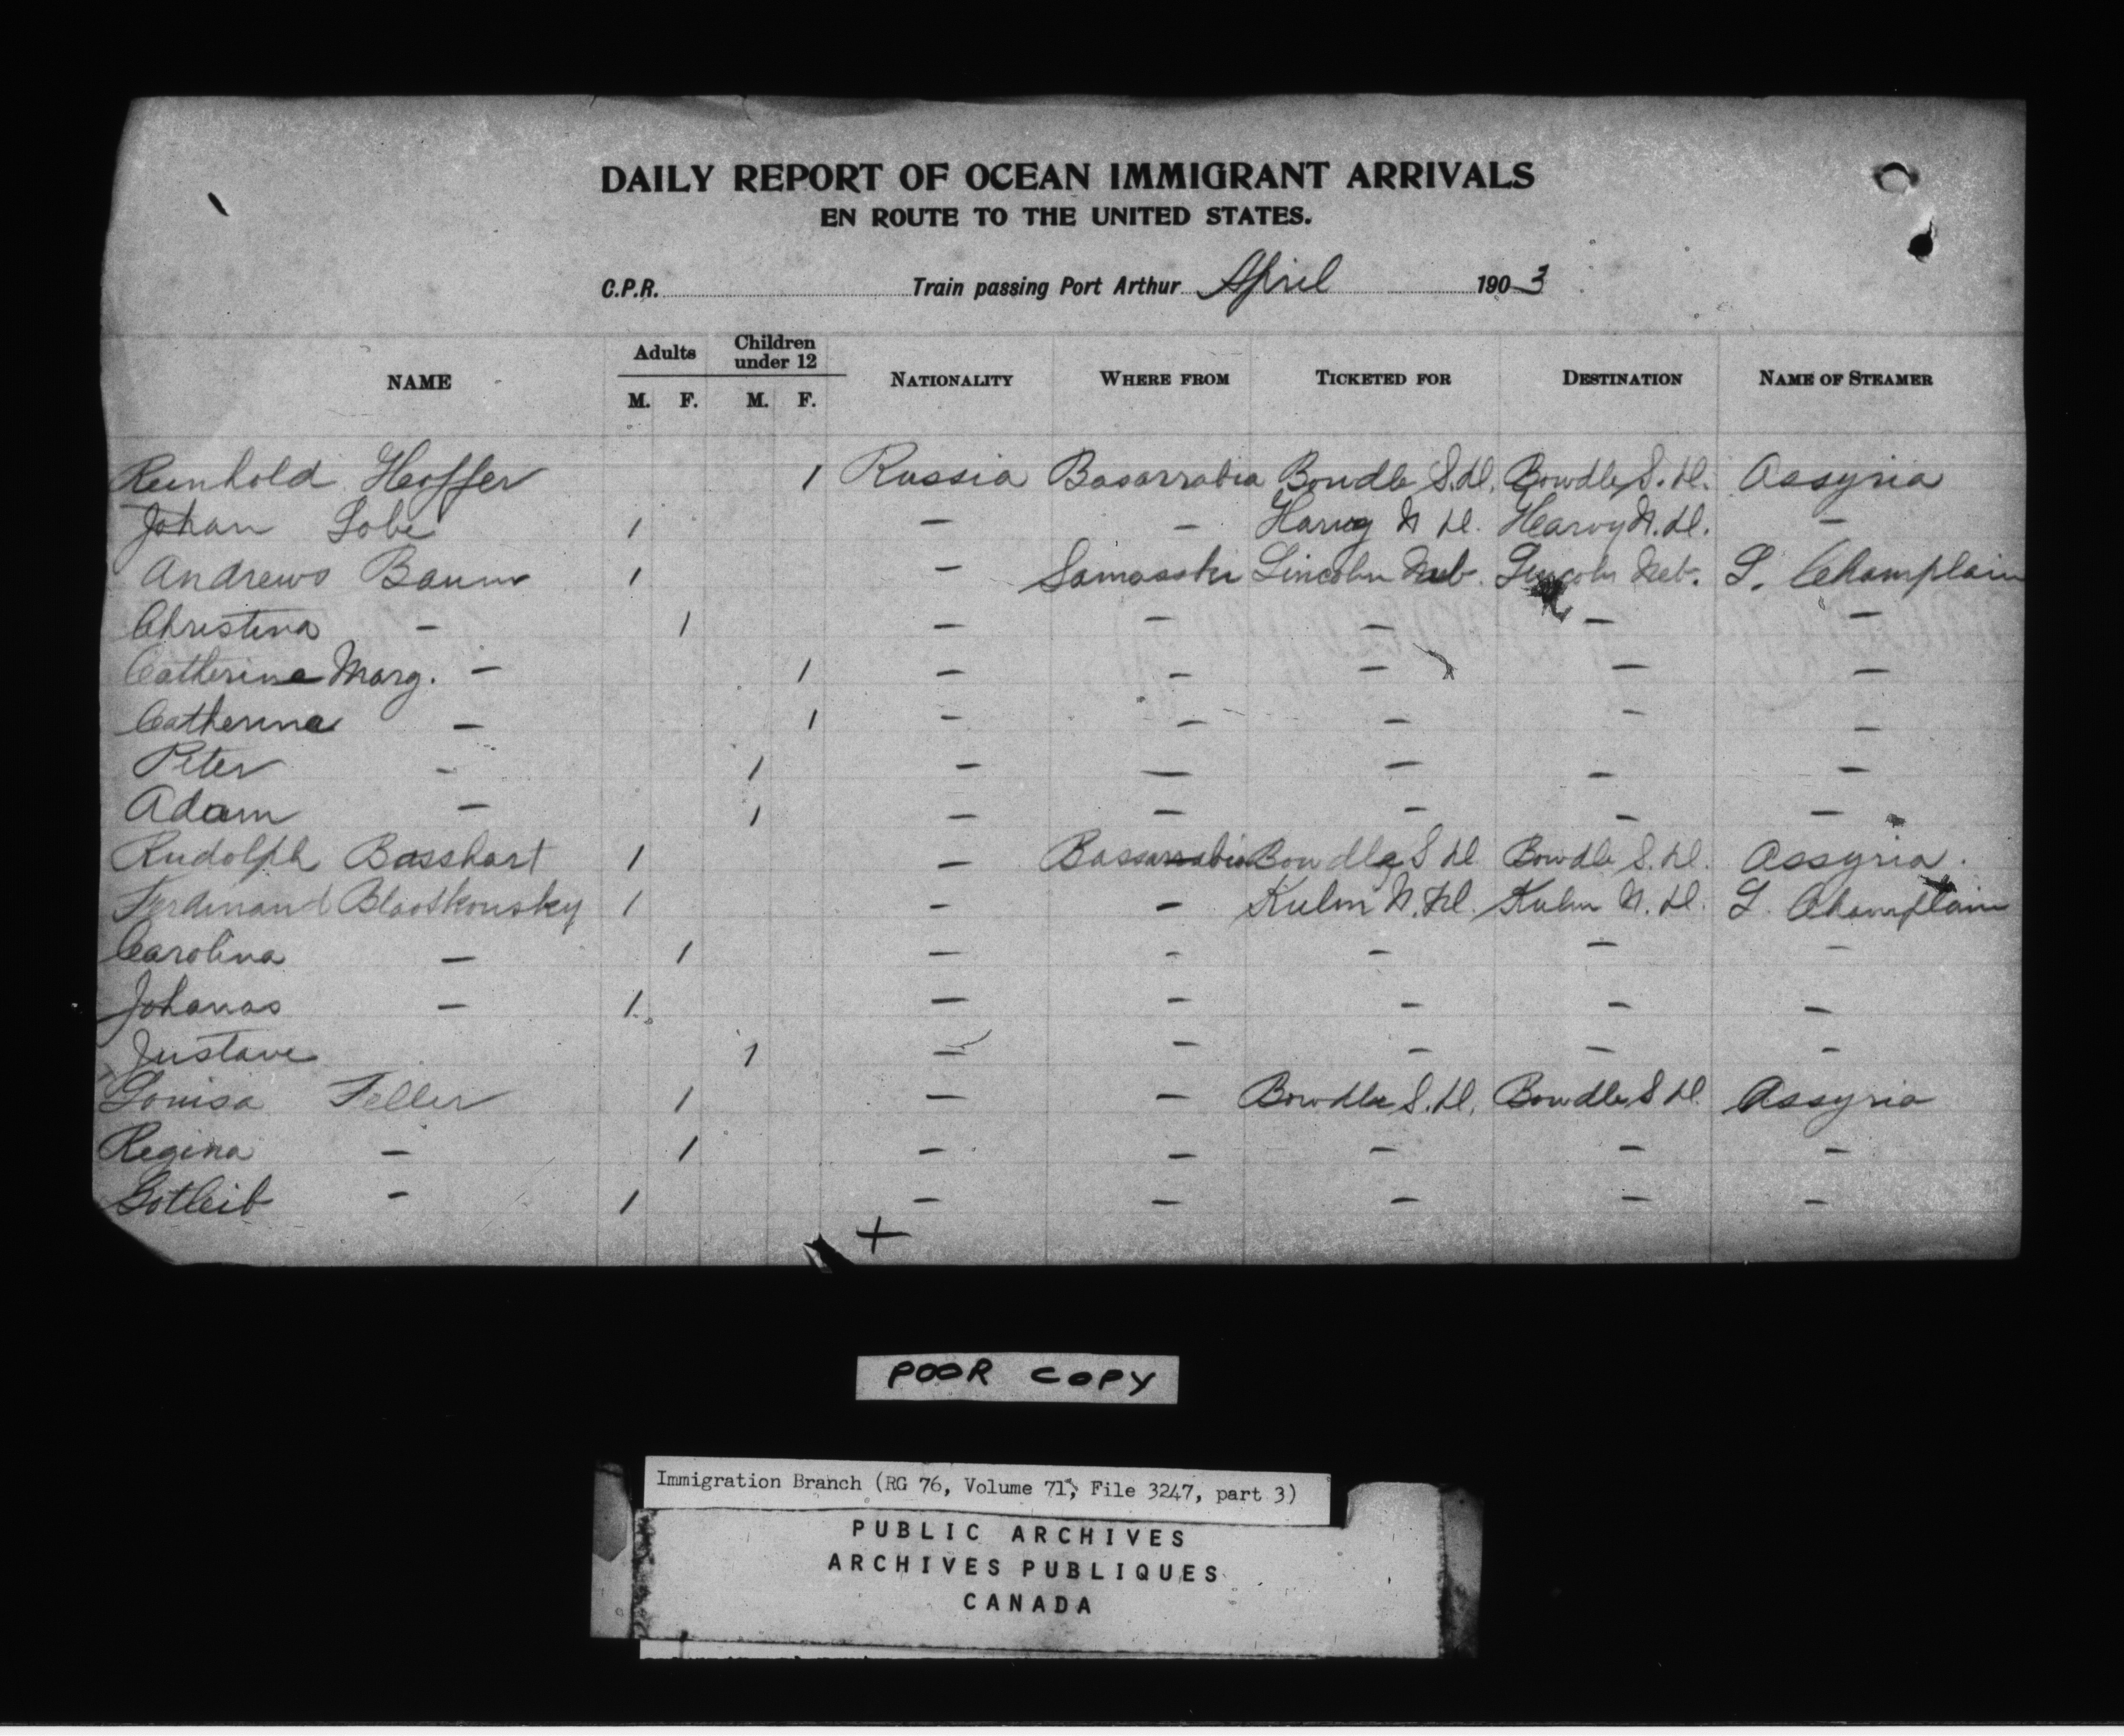 DAILY REPORT OF OCEAN IMMIGRANT ARRIVALS
EN ROUTE TO THE UNITED STATES.
C.P.R. Train passing Port Arthur April 1903
NAME Adults M. F. Children under 12 M. F. NATIONALITY WHERE FROM TICKETED FOR DESTINATION NAME OF STEAMER
Reinhold Hoffer 1 Russia Basarrabia Bowdle S.D. Bowdle S.D. Assyria
Johan Lobe 1 — — Harvy N D. Hearvy N.D. —
Andrews Baum 1 — Samasski Lincoln Neb. Lincoln Neb. L. Champlain
Christina — 1 — — — — —
Catherine Marg. — 1 — — — — —
Catherina — 1 — — — — —
Peter — 1 — — — — —
Adam — 1 — — — — —
Rudolph Basshart 1 — Bassarrabia Bowdle S D. Bowdle S.D. Assyria.
Ferdinand Blaskousky 1 — — Kulm N.D. Kulm N.D. L. Champlain
Carolina — 1 — — — — —
Johanas — 1 — — — — —
Justave 1 — — — — —
Louisa Feller 1 — — Bowdle S.D. Bowdle S D. Assyria
Regina — 1 — — — — —
Gotleib — 1 — — — — —
+
POOR COPY
Immigration Branch (RG 76, Volume 71, File 3247, part 3)
PUBLIC ARCHIVES
ARCHIVES PUBLIQUES
CANADA